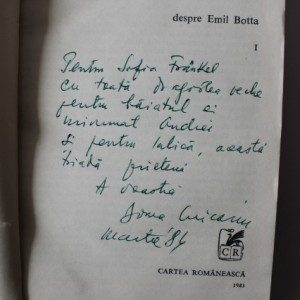 despre Emil Botta
I
Pentru Sofia Fränkel
cu toată dragostea veche
pentru băiatul ei
minunat Andrei
și pentru Lulică, această
triadă prieteni
A voastră
Doina
Martie '84
CR
CARTEA ROMÂNEASCĂ
1983